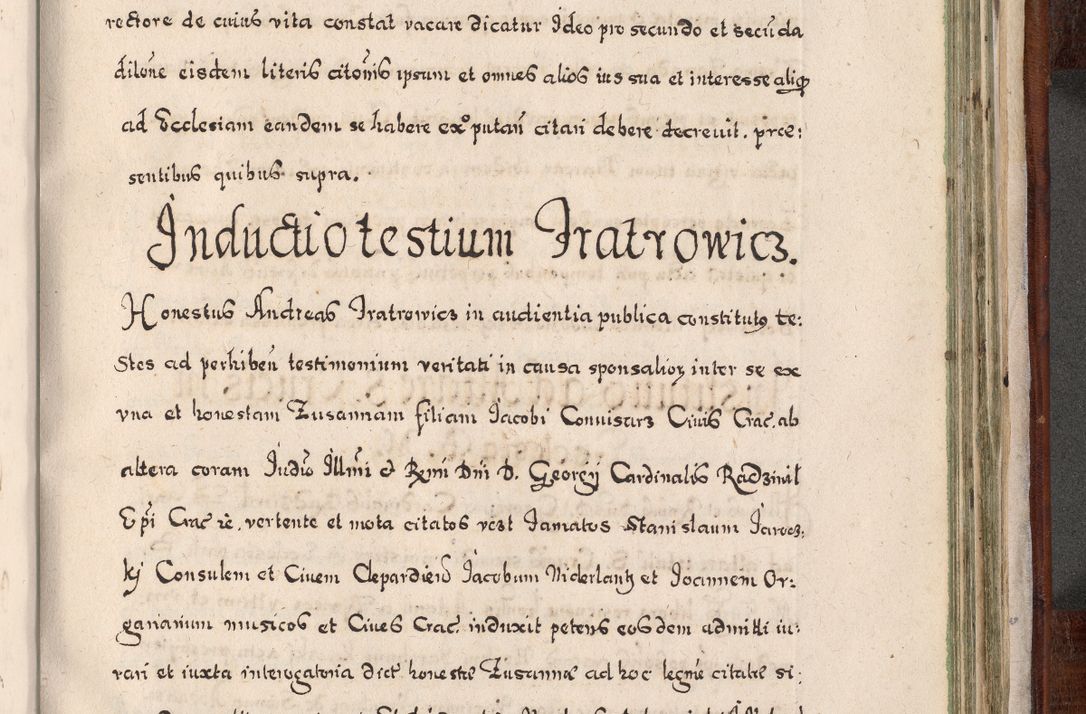 rectore de cuius vita constat vacare dicatur Ideo pro secundo et secūda
dilōne eisdem literis citōnis ipsum et omnes alios ius sua et interesse aliq
ad Ecclesiam eandem se habere exº putañ citari debere decrevit. præ:
sentibus quibus supra.
Inductio testium Iratrowicz.
Honestus Andreas Iratrowicz in audientia publica constitutq te:
stes ad perhibeñ testimonium veritati in causa sponsalioꝝ inter se ex
vna et honestam Zusannam filiam Jacobi Conuisarz Ciuis Crac. ab
altera coram Judiō Illmi et Rmi Dni D. Georgij Cardinalis Radziuil
Epi Crac. vertente et mota citatos Stanislaum Jarocz:
kj Consulem et Ciuem Clepardieñ Jacobum Niderlantz et Joannem Or:
ganarium musicos et Ciues Crac. induxit petens eosdem admitti iu:
rari et iuxta interogatoria dict honestæ Zusannæ ad hoc legme citatæ si: